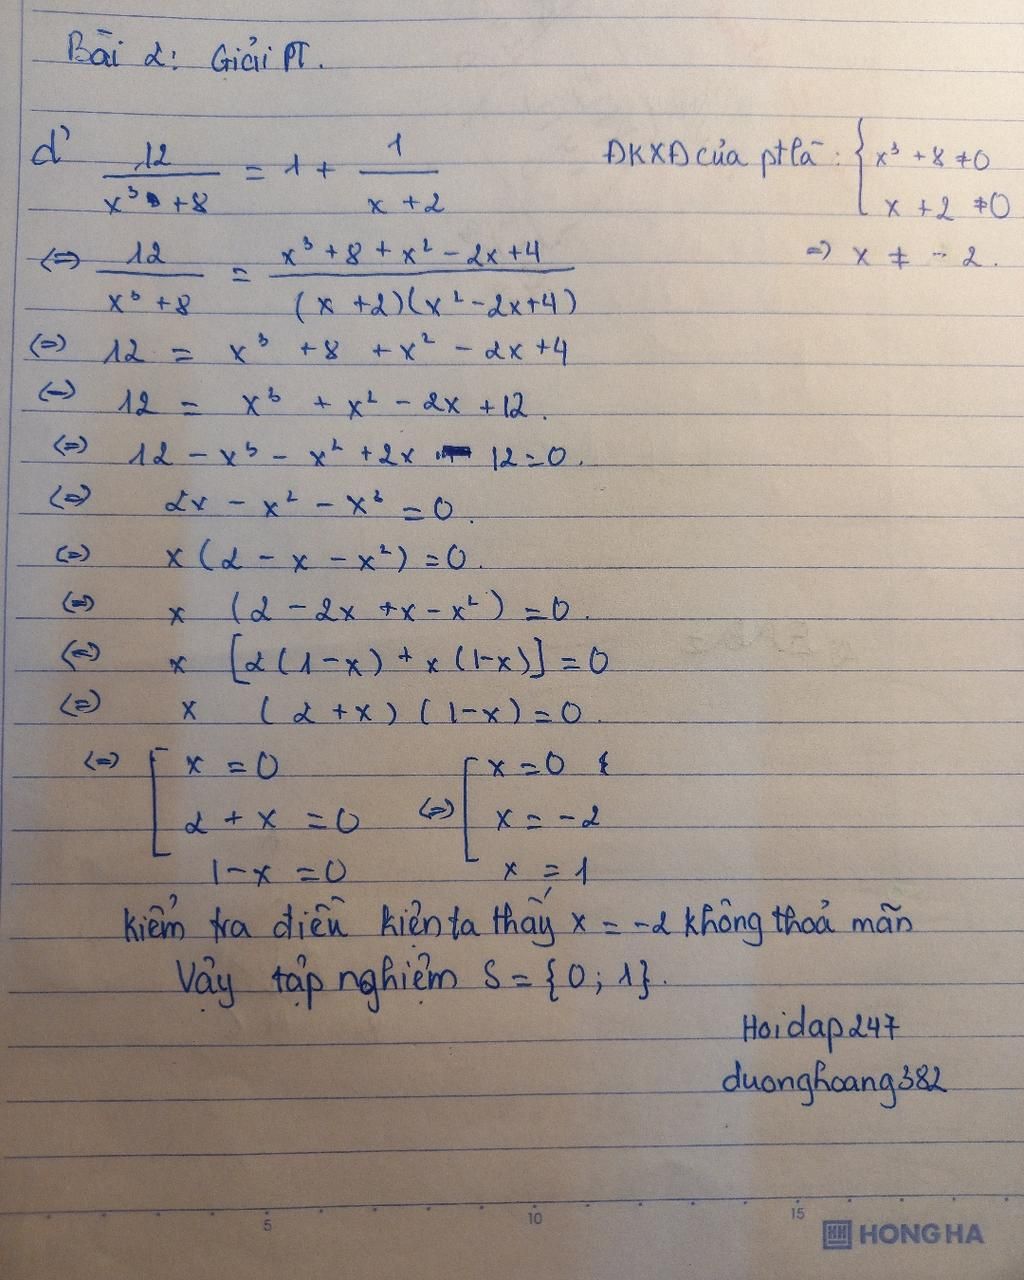 Bài 2: Giải PT.
d) 12/(x³+8) = 1 + 1/(x+2) ĐKXĐ của pt là: { x³+8≠0
x+2≠0
⇔ 12/(x³+8) = (x³+8+x²-2x+4)/((x+2)(x²-2x+4)) ⇒ x ≠ -2.
⇔ 12 = x³ +8 +x² - 2x+4
⇔ 12 = x³ + x² - 2x +12.
⇔ 12 - x³ - x² +2x - 12=0.
⇔ 2x - x² - x³ =0.
⇔ x(2 - x - x²) =0.
⇔ x (2 - 2x +x - x²) =0.
⇔ x [2(1-x) + x(1-x)] =0
⇔ x (2+x) (1-x) =0.
⇔ [ x =0 [ x=0
2 + x =0 ⇔ x = -2
1-x =0 x =1
Kiểm tra điều kiện ta thấy x = -2 không thoả mãn
Vậy tập nghiệm S = {0; 1}.
Hoidap247
duonghoang382
5 10 15
HONG HA